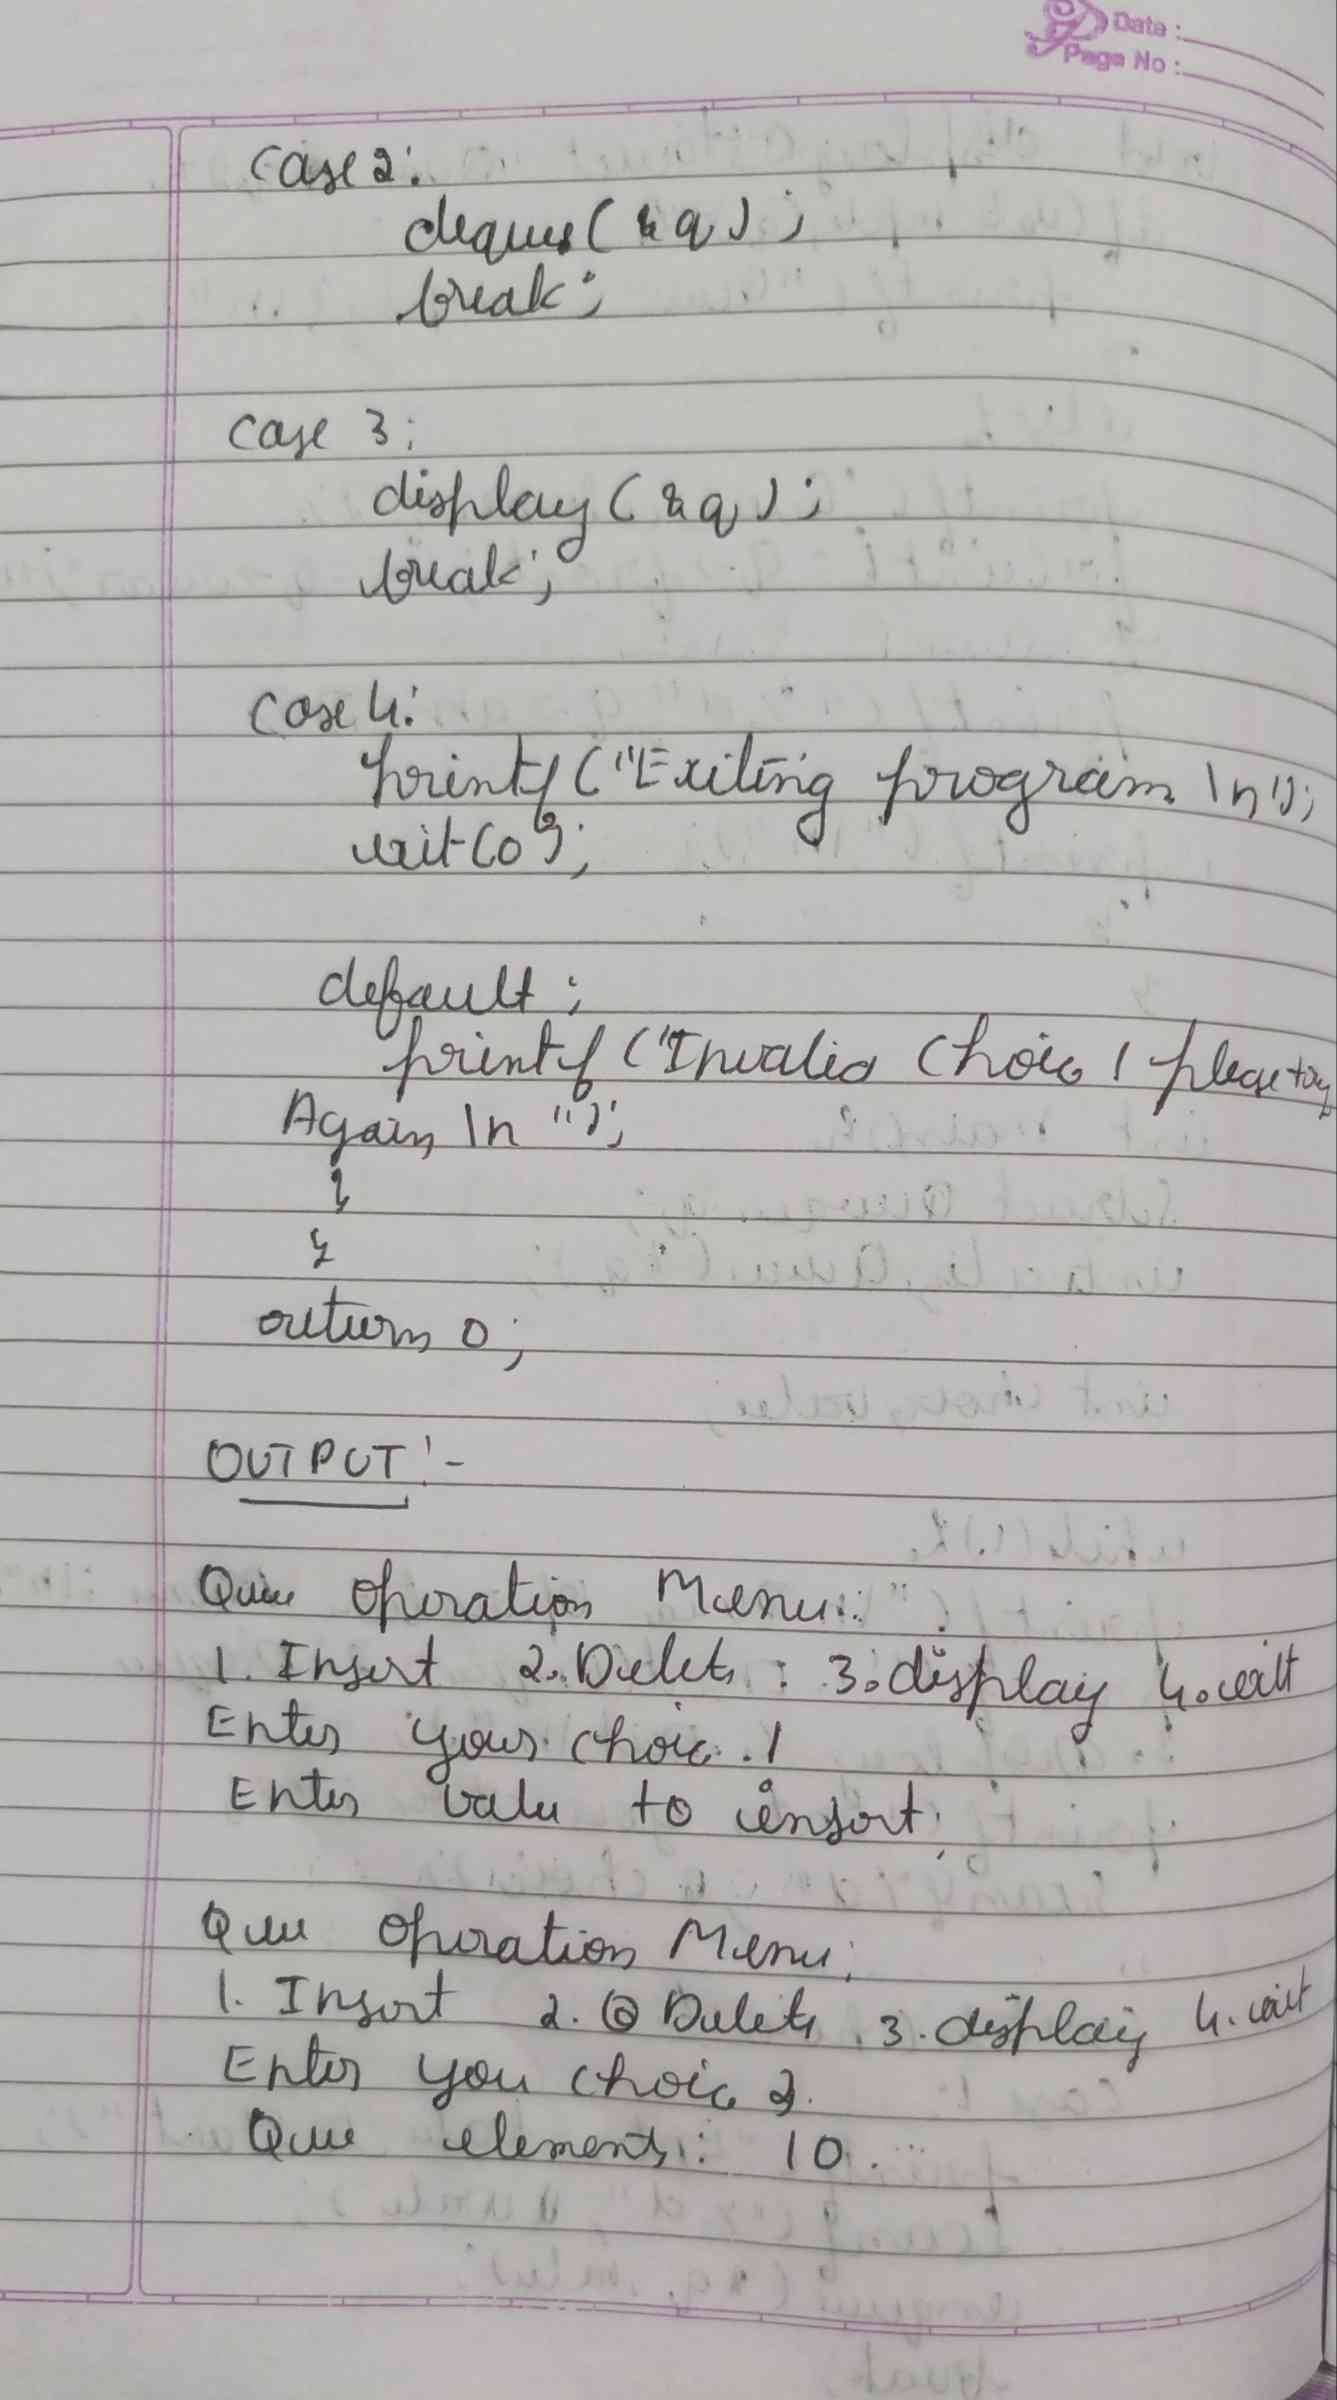 Date :
Page No :
case 2:
deque(&q);
break;
case 3;
display(&q);
break;
case 4:
printf("Exiting program \n");
exit(0);
default;
printf("Invalid Choic ! please try
Again \n ");
}
}
return 0;
OUTPUT :-
Queue Operation Menu:
1. Insert 2. Delete : 3. display 4. exit
Enter your choic . 1
Enter value to insert;
Queue Operation Menu;
1. Insert 2. Delete . 3. display 4. exit
Enter you choic
Queue elements: 10.